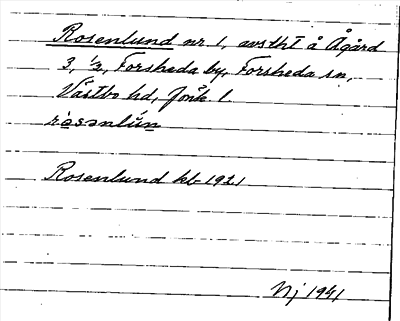 Rosenlund nr 1, avstht å Ågård
3, 1/2, Forsheda by, Forsheda sn,
Västbo hd, Jönk l.
Rosenlund kb 1921
Nj 1941